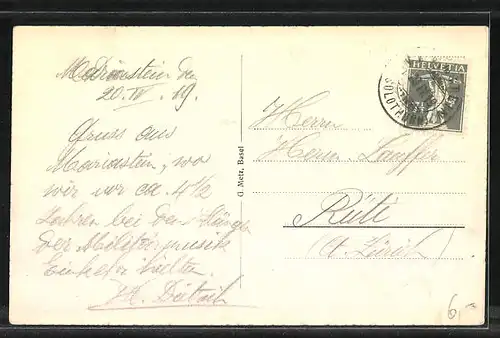 Mariastein den
20. IV. 19.
Gruss aus
Mariastein, wo
wir vor ca. 4½
Jahren bei den Klängen
der Militärmusik
Einkehr hielten.
G. Metz, Basel
HELVETIA
SOLOTHURN
Herrn
Herm. Lauffer
Rüti
(Ct. Zürich)
6.-